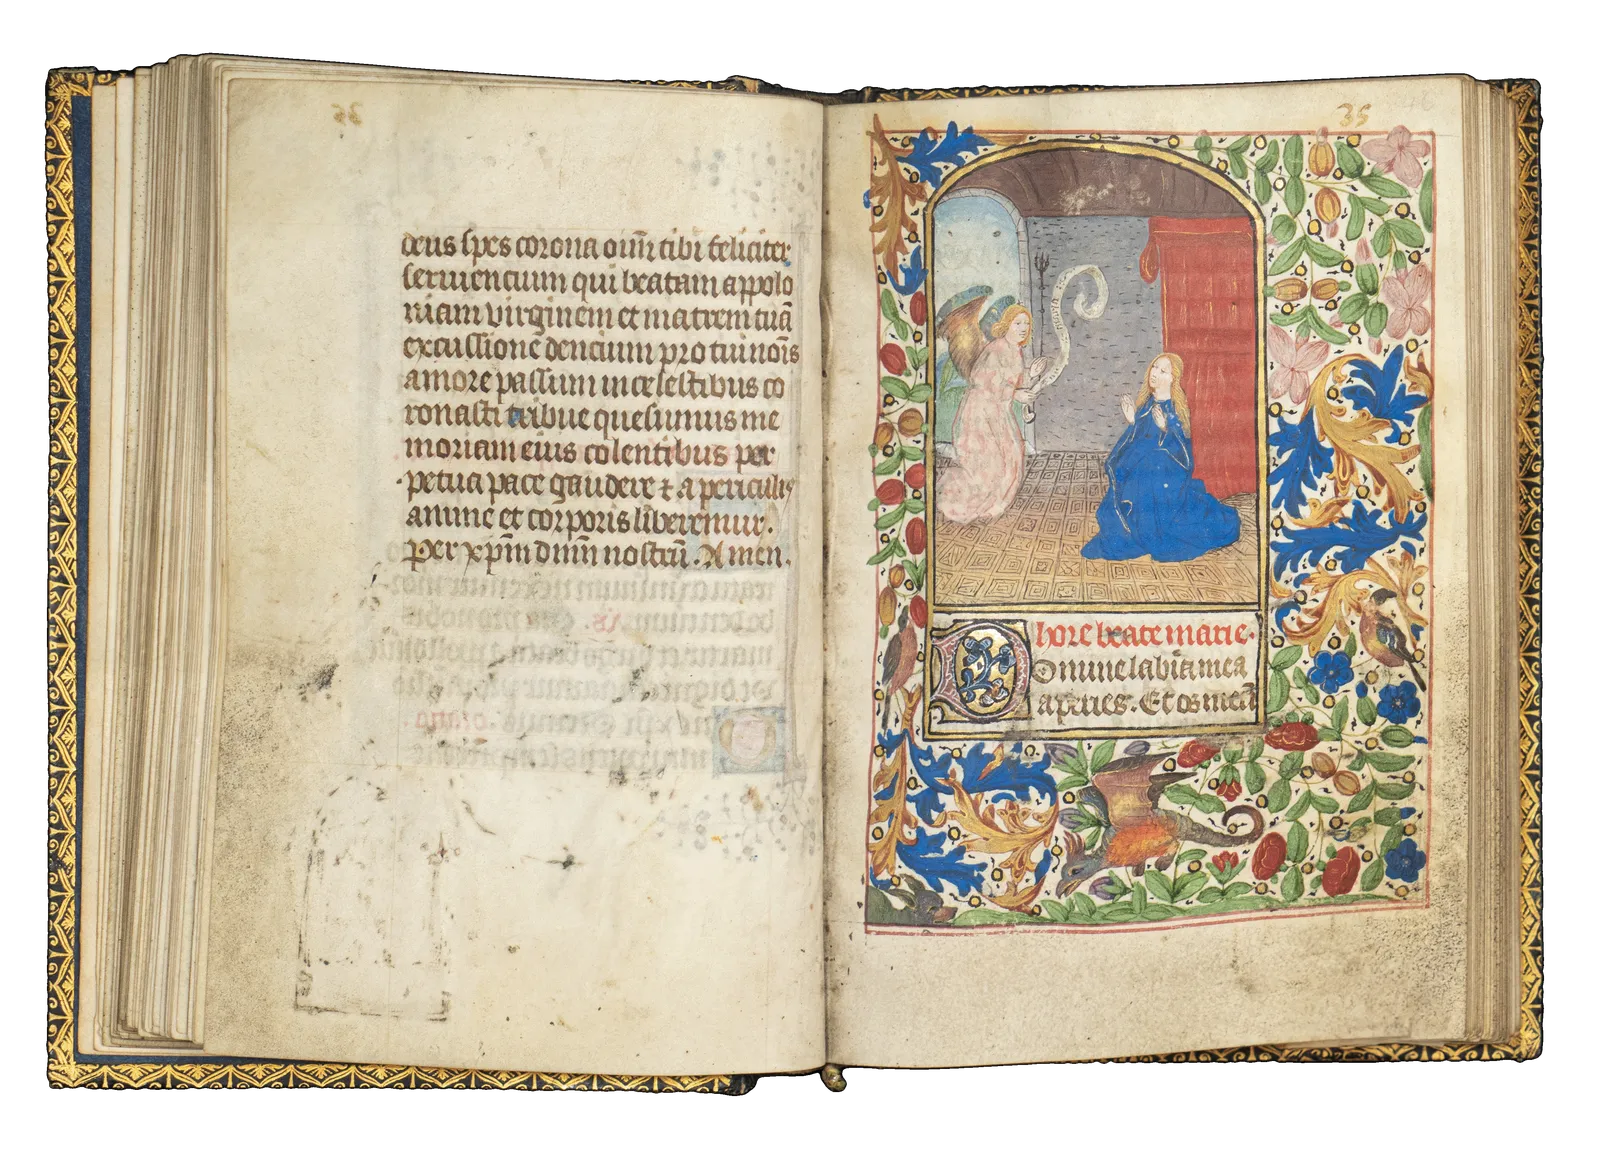 deus spes corona oīm tibi feliciter
seruiencium qui beatam appolo
niam virginem et matrem tuā
excussione dencium pro tui nois
amore passum in celestibus co
ronasti tribue quesumus me
moriam eius colentibus per
petua pace gaudere et a periculis
anime et corporis liberemur.
Per xp̄m dnm̄ nostrū. Amen.
35
hore beate marie.
Domine labia mea
aperies. Et os meū